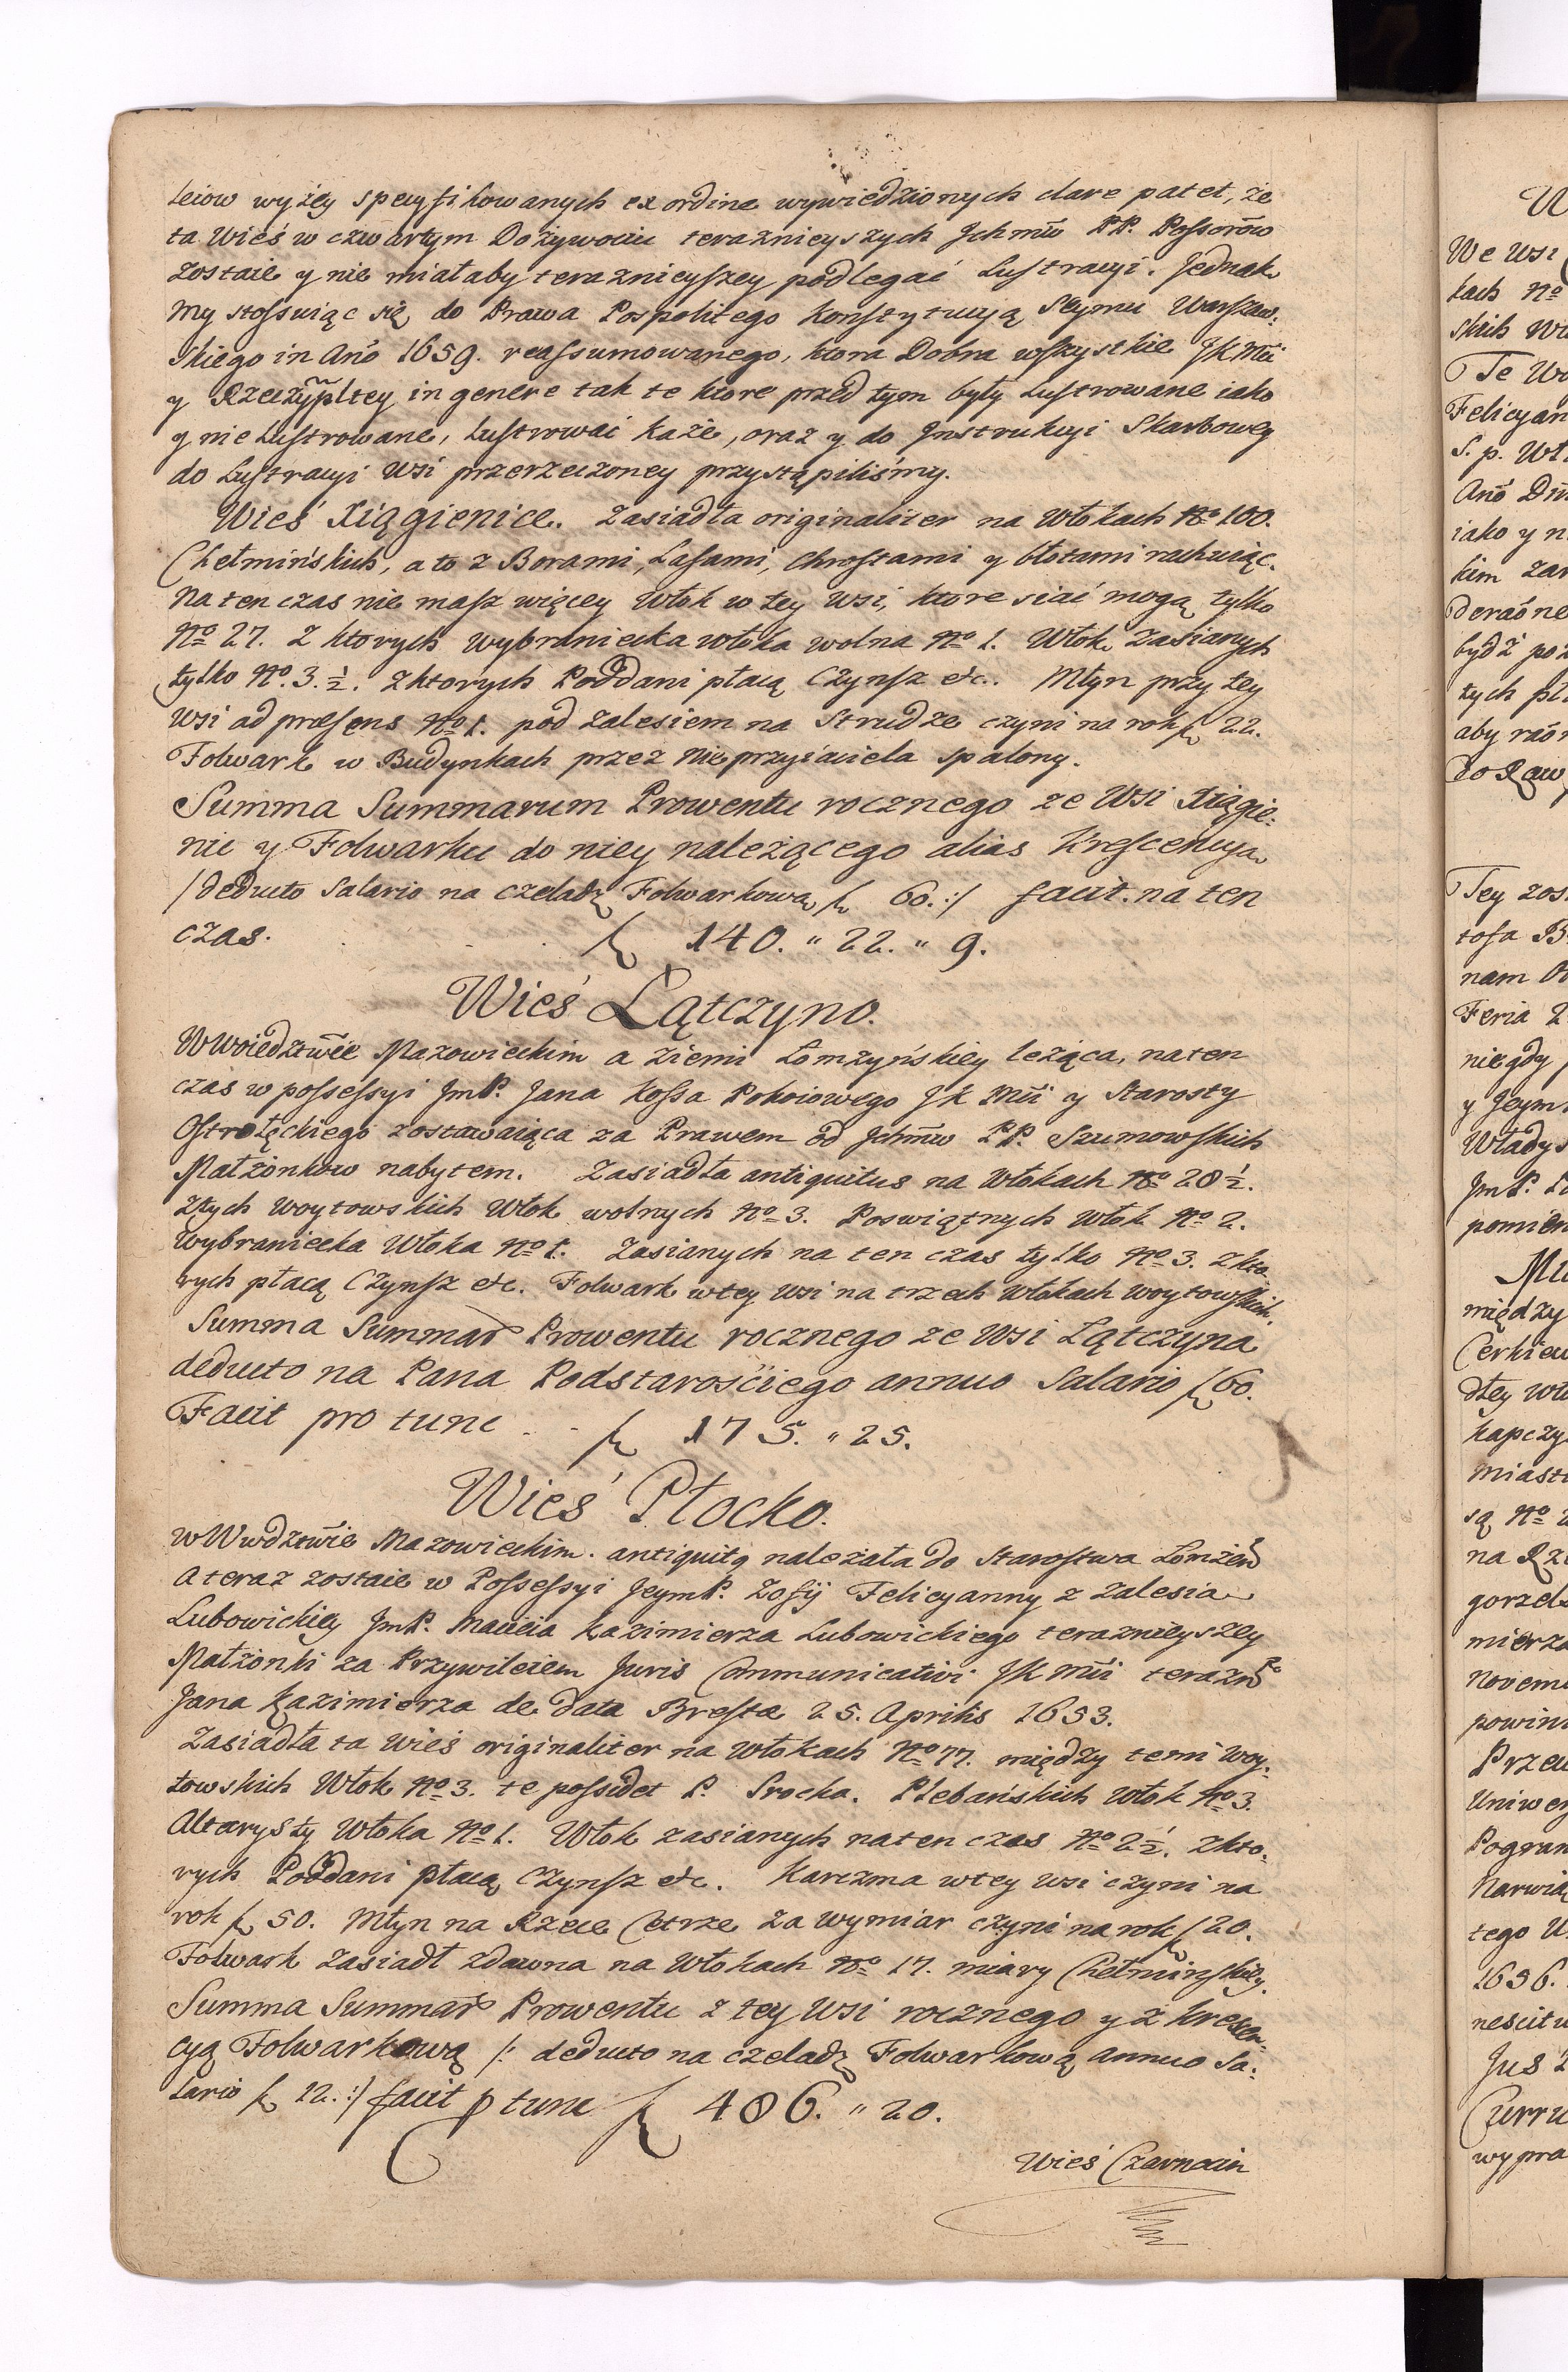 leiow wyżey specyfikowanych ex ordine wywiedzionych clare patet, że
ta Wieś w czwartym Dożywociu teraznieyszych Jchmw PP. Possorów
zostaie y nie miałaby teraznieyszey podlegać Lustracyi. Jednak
my stosuiąc się do Prawa Pospolitego Konstytucyą Seymu Warszaw:
skiego in Ano 1659. reassumowanego, ktora Dobra wszystkie JKMci
y Rzeczypltey in genere tak te ktore przed tym były Lustrowane iako
y nie Lustrowane, Lustrowac każe, oraz y do Jnstrukcyi Skarbowey
do Lustracyi Wsi przerzeczoney przystąpiliśmy.
Wieś Xiągienice. Zasiadła originaliter na Włokach No 100.
Chełmińskich, a to z Borami, Lasami, Chrostami y błotami rachuiąc.
Na ten czas nie masz więcey Włok w tey Wsi, ktore siać mogą tylko
No 27. z ktorych wybraniecka włoka wolna No 1. Włok zasianych
tylko No. 3. ½. z ktorych Poddani płacą Czynsz etc. Młyn przy tey
Wsi ad præsens No 1. pod Zalesiem na Strudze czyni na rok f 22.
Folwark w Budynkach przez Nieprzyiaciela spalony.
Summa Summarum Prowentu rocznego ze Wsi Xiągie:
nic y Folwarku do niey należącego alias Krescencya
/deducto Salario na czeladz Folwarkową f 60.:/ facit. na ten
czas. f 140. " 22. " 9.
Wieś Łątczyno.
W Woiedztwie Mazowieckim a Ziemi Łomzyńskiey leżąca, na ten
czas w possessyi JmP. Jana Kossa Pokoiowego JK Mci y Starosty
Ostrołęckiego zostawaiąca za Prawem od Jchmw PP. Szumowskich
Małżonkow nabytem. Zasiadła antiquitus na Włokach No 28 ½.
Z tych Woytowskich Włok wolnych No 3. Poswiątnych Włok No 2.
Wybraniecka Włoka No 1. Zasianych na ten czas tylko No 3. z kto
rych płacą Czynsz etc. Folwark w tey Wsi na trzech Włokach Woytowskich.
Summa Summar Prowentu rocznego ze Wsi Łątczyna
deducto na Pana Podstarościego annuo Salario f 60.
Facit pro tunc f 175. " 25.
Wieś Płocko.
w Wwdztwie Mazowieckim. antiquitq należała do Starostwa Łomżen
A teraz zostaie w Possessyi JeymP. Zofij Felicyanny z Zalesia
Lubowickiey JmP. Macieia Kazimierza Lubowickiego teraznieyszey
Małżonki za Przywileiem Juris Communicativi JK Mci terazngo
Jana Kazimierza de data Brestæ 25. Aprilis 1653.
Zasiadła ta Wieś originaliter na Włokach No 77. między temi Woy:
towskich Włok No 3. te possidet P. Srocka. Plebańskich Włok No 3.
Altarysty Włoka No 1. Włok zasianych na ten czas No 2½. z kto:
rych Poddani płacą Czynsz etc. Karczma w tey Wsi czyni na
rok f 50. Młyn na Rzece Cetrze za wymiar czyni na rok f 20.
Folwark zasiadł zdawna na Włokach No 17. miary Chełminskiey.
Summa Summar Prowentu z tey Wsi rocznego y z Krescen
cyą Folwarkową /: deducto na czeladz Folwarkową annuo Sa:
lario f 12.:/ facit p tunc f 486. " 20.
Wieś Czarnocin